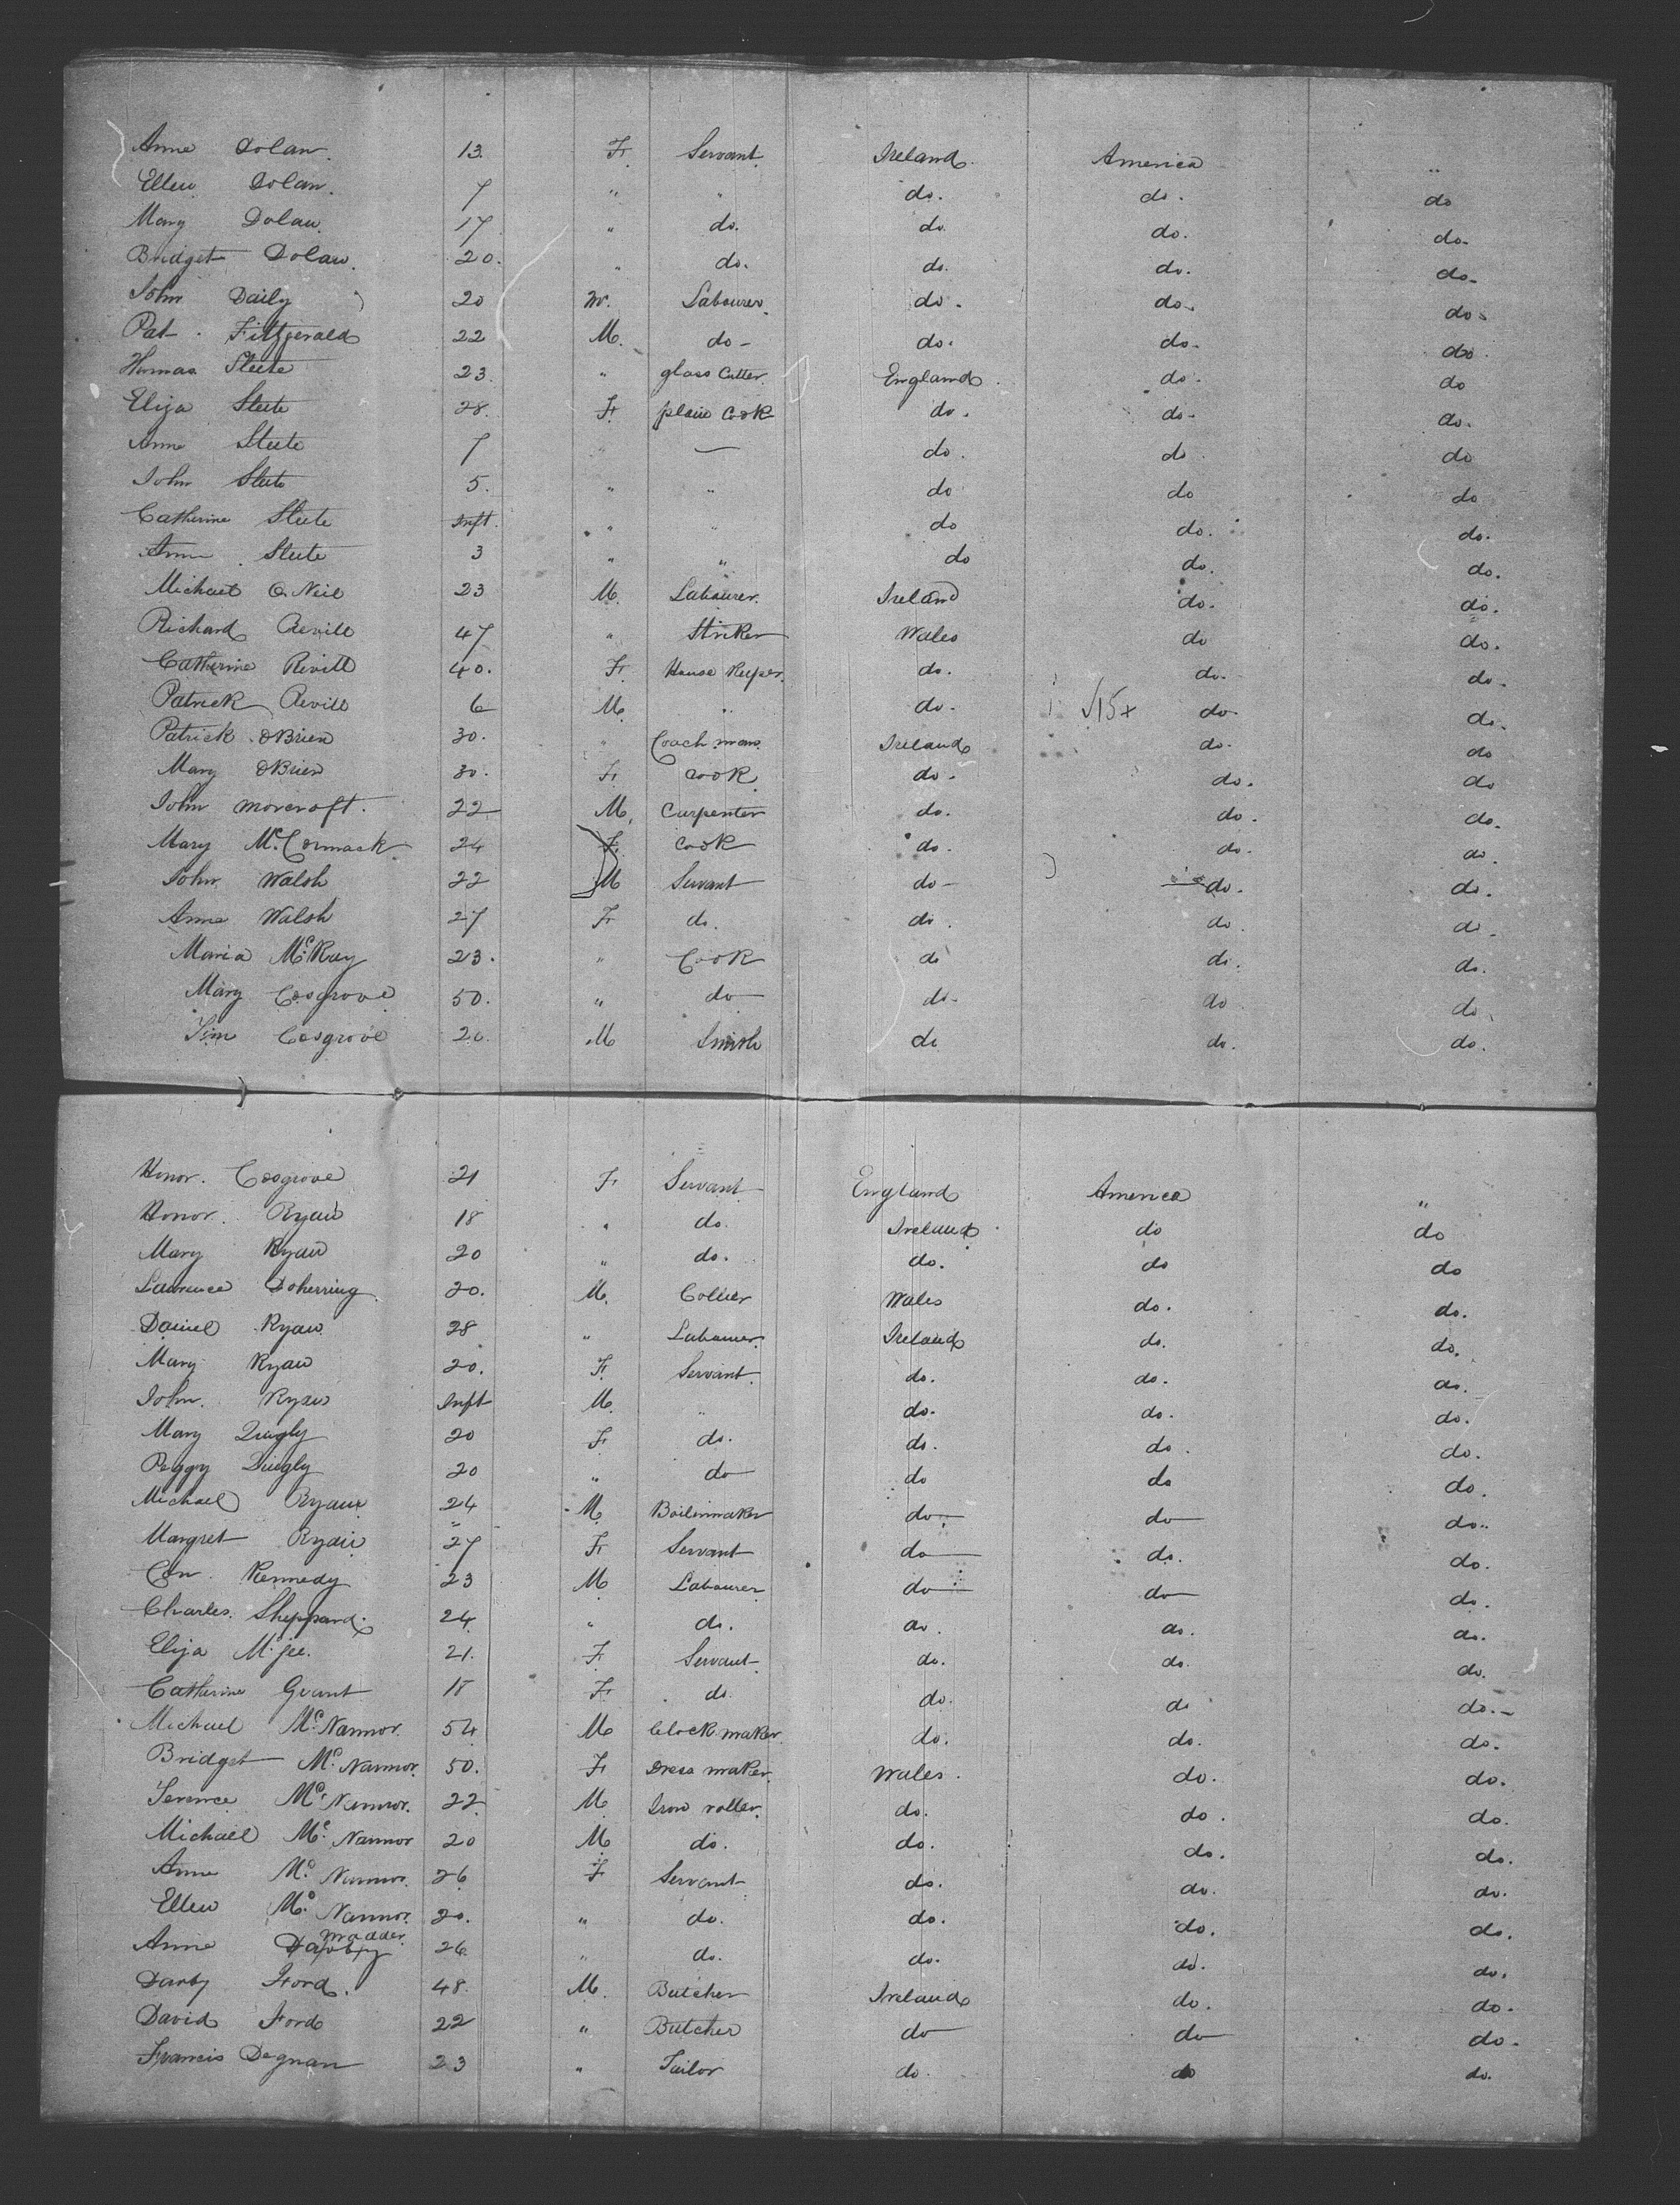 Anne Dolan. 13. F. Servant. Ireland. America "
Ellen Dolan. 7 " " do. do. do
Mary Dolan. 17. " do. do. do. do.
Bridget Dolan. 20. " do. do. do. do.
John Daily 20 M. Labourer. do. do. do.
Pat. Fitzgerald 22 M. do do. do. do.
Thomas Steete 23. " glass Cutter. England. do. do
Eliza Steete 28. F. plain Cook do. do. do.
Anne Steete 7 " — do. do. do
John Steete 5. " " do do do
Catherine Steete Inft. " " do do. do.
Ann Steete 3 " " do do. do.
Michael O Neil 23 M. Labourer. Ireland do. do.
Richard Revill 47 " Striker Wales do do.
Catherine Revill 40. F. House Keeper. do. do. do.
Patrick Revill 6 M. " do. √15+ do. do.
Patrick OBrien 30. " Coach man. Ireland do. do
Mary OBrien 30. F. Cook. do. do. do
John Morcroft. 22 M. Carpenter do. do. do.
Mary Mc Cormack 24 F. Cook do. do. do.
John Walsh 22 M Servant do do. do.
Anne Walsh 27 F. do. do. do. do.
Maria Mc Kay 23. " Cook do do. do.
Mary Cosgrove 50. " do do. do do
Tim Cosgrove 20. M Smith do do. do.
Honor. Cosgrove 21 F. Servant England America "
Honor. Ryan 18 " do. Ireland. do do
Mary Ryan 20 " do. do. do do
Laurence Doherring 20. M. Collier Wales do. do.
Daniel Ryan 28 " Labourer. Ireland do. do.
Mary Ryan 20. F. Servant. do. do. do.
John. Ryan Inft M. " do. do. do.
Mary Quigly 20 F. do. do. do. do.
Peggy Quigly 20 " do do do do.
Michael Ryan 24 M. Boilermaker do. do do.
Margret Ryan 27 F. Servant do do. do.
Con. Kennedy 23 M. Labourer do do do.
Charles. Sheppard. 24. " do. do. do. do.
Eliza Mc jee. 21. F. Servant do. do. do.
Catherine Grant F. do. do. do do.
Michael Mc Nannor. 54 M Clock maker. do. do. do.
Bridget Mc Nannor. 50. F. Dress maker. Wales. do. do.
Terence Mc Nannor. 22 M. Iron roller. do. do. do.
Michael Mc Nannor 20 M. do. do. do. do.
Anne Mc Nannor. 26 F Servant do. do. do.
Ellen Mc Nannor. 20. " do. do. do. do.
Anne Madder. 26 " do. do. do. do.
Darby Ford. 48. M. Butcher Ireland do. do.
David Ford 22 " Butcher do do do.
Francis Degnan 23 " Tailor do. do do.